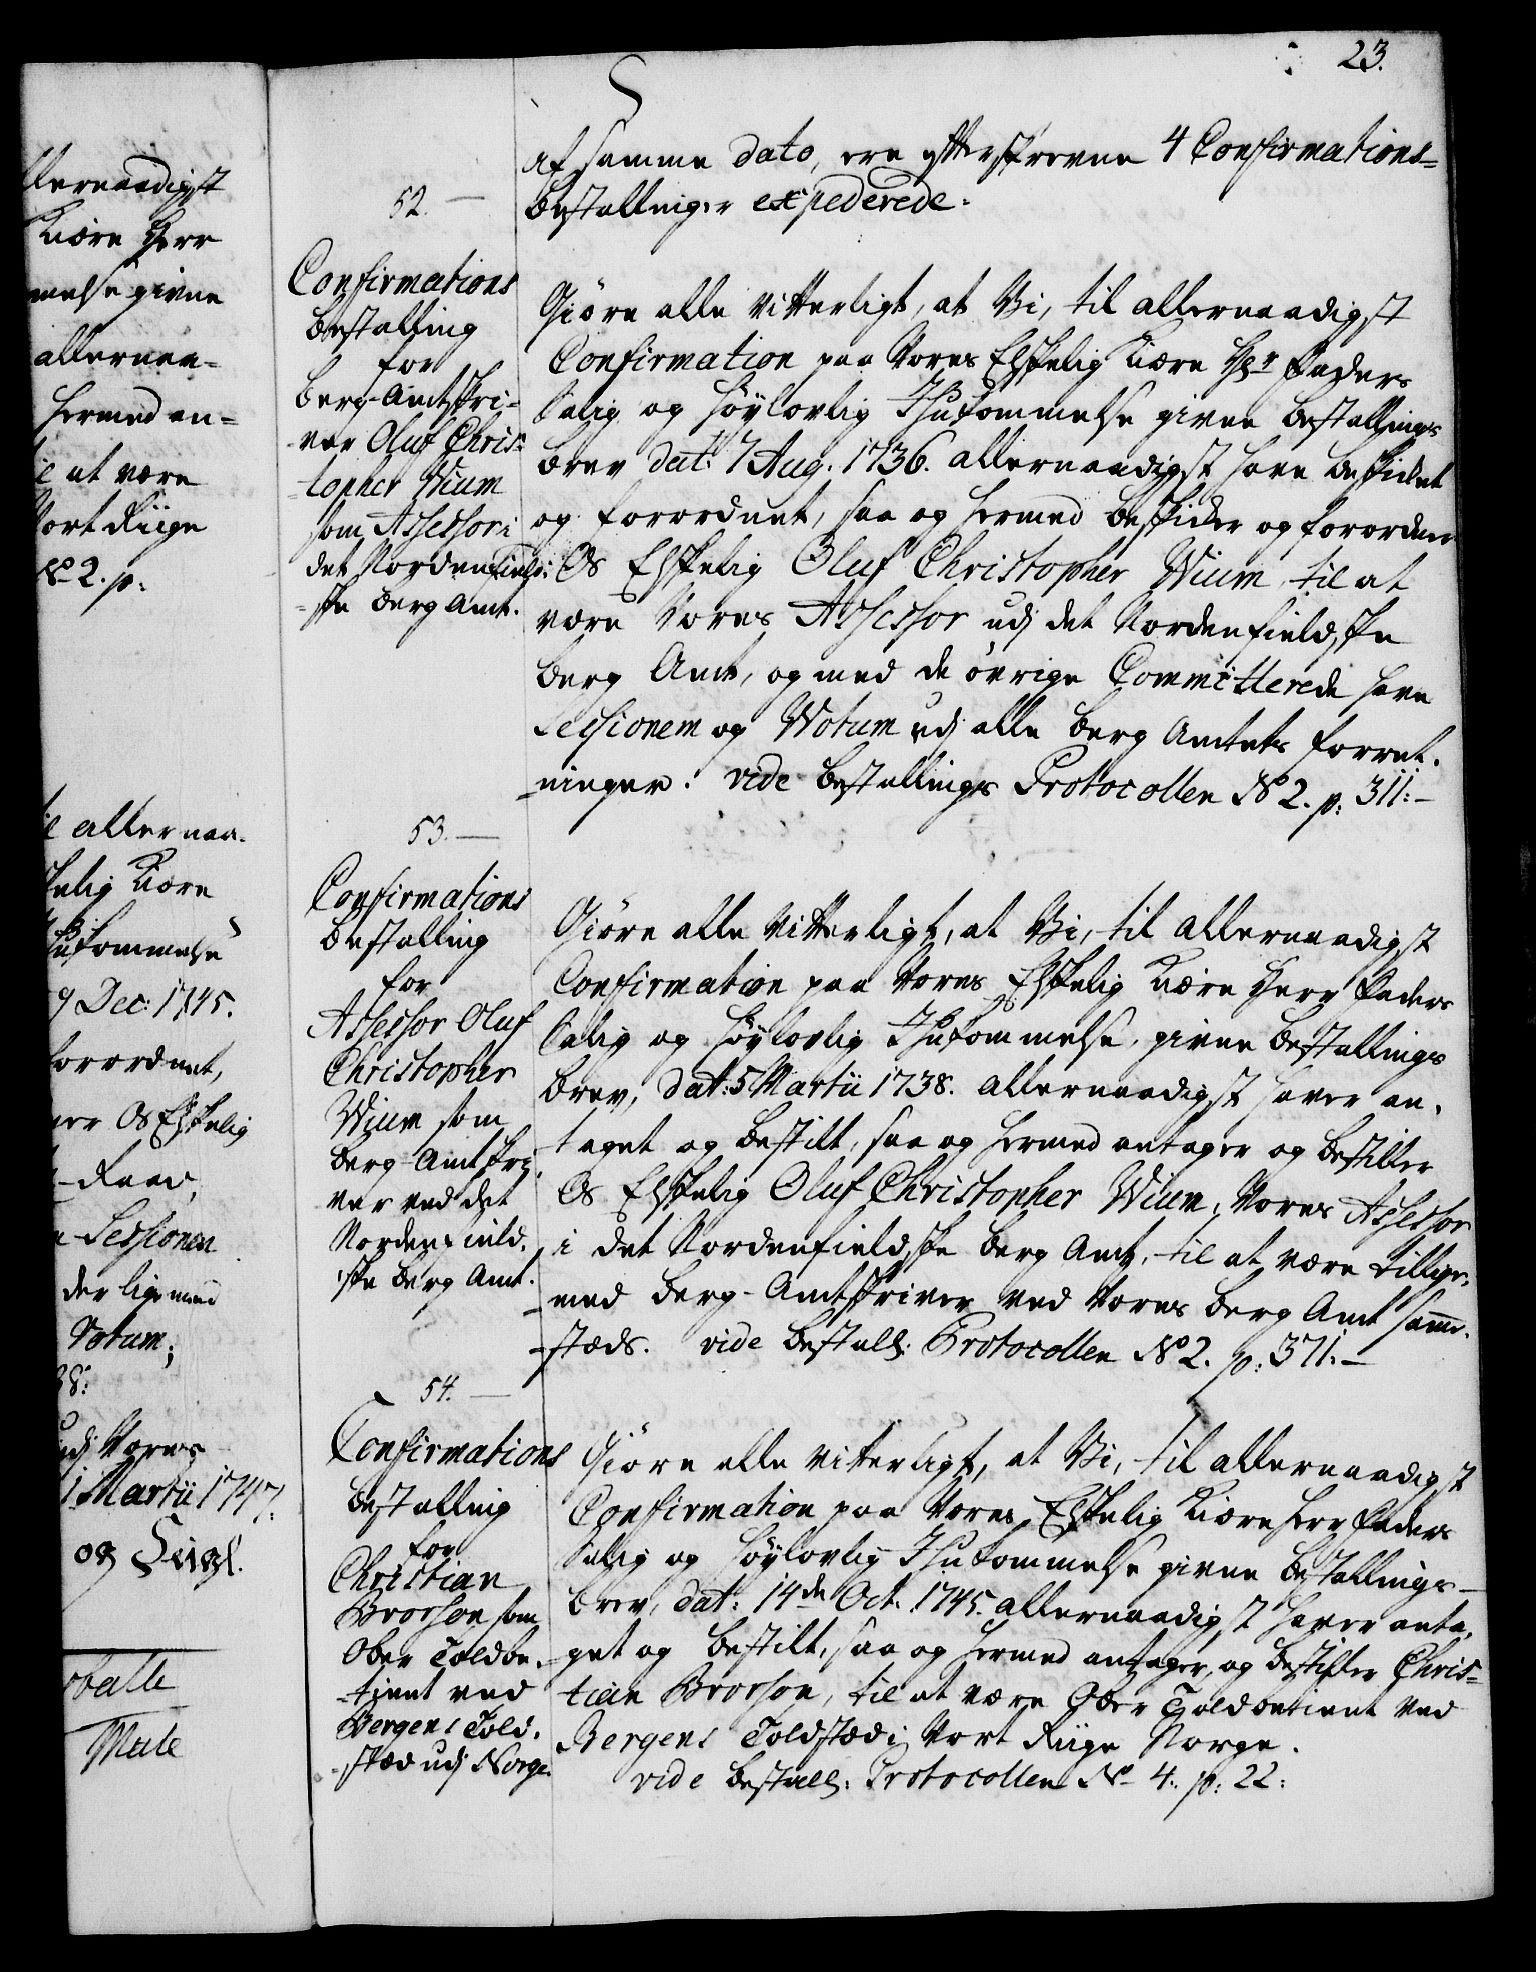 23.
af samme dato, ere efterskrevne 4 Confirmations-
bestallinger expederede.
52.
Confirmations
bestalling
for
Berg-Amtskri-
ver Oluf Chris-
topher Wium
som Assessor i
det Nordenfield-
ske Berg Amt.
Giöre alle Vitterligt, at Vi, til allernaadigst
Confirmation paa Vores Elskelig Kiere Hr Faders
Salig og Höylovlig Ihukommelse givne bestallings
brev dat: 7 Aug. 1736. allernaadigst have beskicket
og forordnet, saa og hermed beskicker og forordner
Os Elskelig Oluf Christopher Wium, til at
være Vores Assessor udj det Nordenfieldske
Berg Amt, og med de övrige Committerede have
Sessionem og Wotum udj alle Berg Amtets forret-
-ninger. vide bestallings Protocollen No 2. p: 311.-
53.
Confirmations
bestalling
for
Assessor Oluf
Christopher
Wium som
Berg-Amtskri-
ver ved det
Nordenfield-
ske Berg Amt.
Giöre alle Vitterligt, at Vi, til allernaadigst
Confirmation paa Vores Elskelig Kiære Herr Faders
Salig og Höylovlig Ihukommelse, givne bestallings
brev, dat: 5 Martii 1738. allernaadigst haver an-
taget og bestilt, saa og hermed antager og bestiller
Os Elskelig Oluf Christopher Wium, Vores Assessor
i det Nordenfieldske Berg Amt, til at være tillige
-med Berg-Amtskriver ved Vores Berg Amt samme-
-stæds. vide bestall: Protocollen No 2. p: 371.-
54.
Confirmations
bestalling
for
Christian
Brorson som
Ober Toldbe-
-tient ved
Bergens Told-
-stæd udj Norge.
Giöre alle vitterligt, at Vi, til allernaadigst
Confirmation paa Vores Elskelig Kiære Herr Faders
Salig og Höylovlig Ihukommelse givne bestallings-
brev, dat: 14de Oct. 1745. allernaadigst haver anta-
get og bestilt, saa og hermed antager, og bestiller Chris-
tian Brorson, til at være Ober Toldbetient ved
Bergens Toldstæd i Vort Riige Norge.
vide bestall: Protocollen No 4. p: 22:
llernaadigst
Kiære Herr
melse givne
allernaa-
hermed an-
at være
Vort Riige
No 2. p:
allernaa-
kelig Kiære
Ihukommelse
9 Dec: 1745.
forordnet,
Os Elskelig
-Raad,
Sessionen
der lige med
Votum;
udj Vores
1 Martii 1747.
og